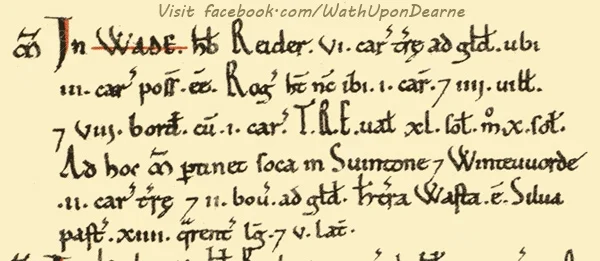 Visit facebook.com/WathUponDearne
m̄ In WADE. hb̄ Reider. vi. car᷒ tr̄ę ad gl̄d. ubi
iii. car᷒ poss̄. ēē. Rog᷒ ht̄ nc̄ ibi. i. car̄. ⁊ iiii. uill̄.
⁊ viii. bord̄. cū. i. car᷒. T.R.E. ual̄ xl. sol̄. m̊. x. sol̄.
Ad hoc m̄ ꝑtinet soca in Suintone ⁊ Winteuuorde
.ii. car᷒ tr̄ę ⁊ ii. bou᷒. ad gl̄d. Wasta. ē. Silua
past᷒. xiiii. qrent᷒ lḡ. ⁊ v. lat̄.